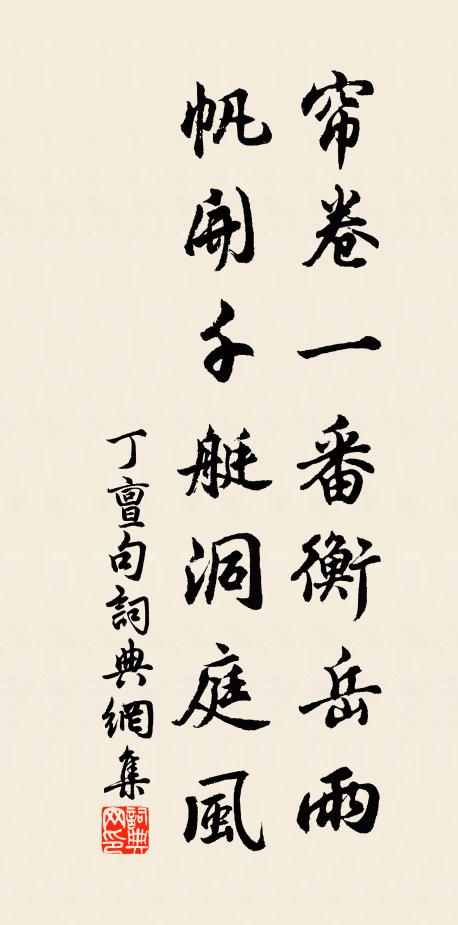 帘卷一番衡岳雨
帆開千艇洞庭風
丁亶句詞典網集
詞典网印